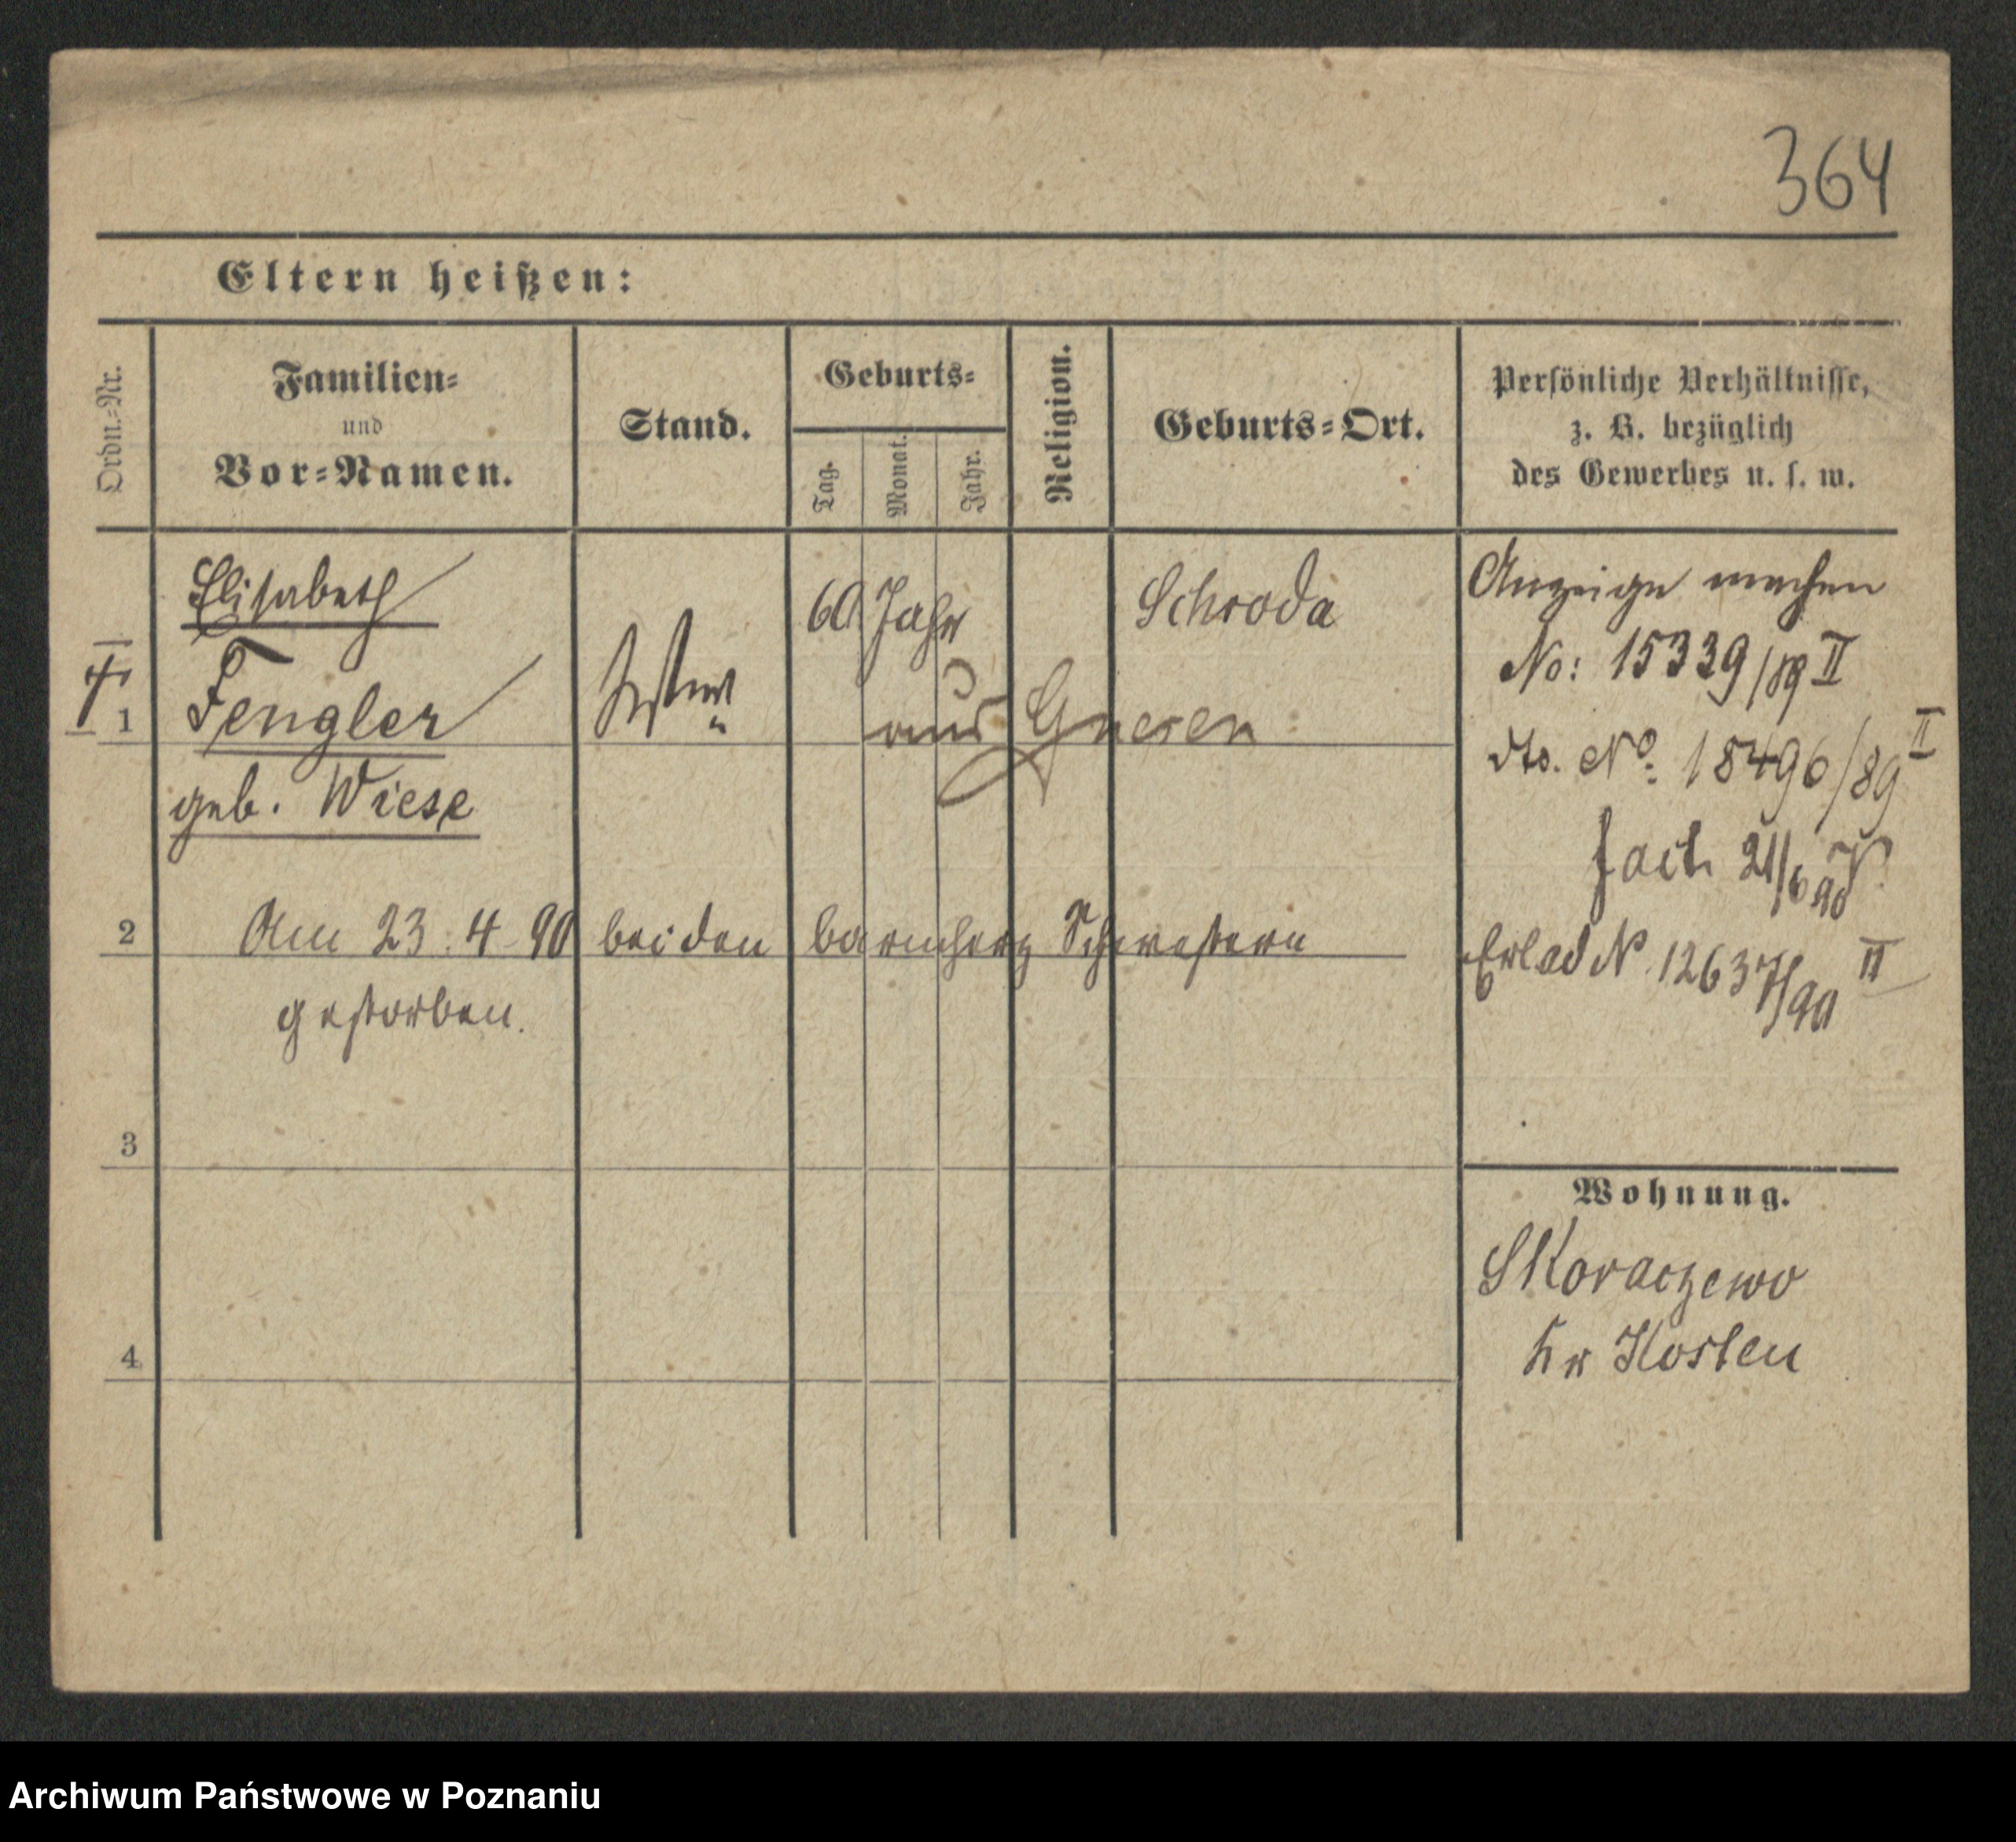 364
Eltern heißen:
Ordn.=Nr.
Familien=
und
Vor=Namen.
Stand.
Geburts=
Tag.
Monat.
Jahr.
Religion.
Geburts=Ort.
Persönliche Verhältnisse,
z. B. bezüglich
des Gewerbes u. s. w.
1
Elisabeth
Fengler
geb. Wiese
60 Jahr
aus Gnesen
Schroda
Anzeige machen
No: 15339/89 II
dto. No. 18496/89 II
fact. 21/6 90
Erled N. 12637/90 II
2
Am 23.4-90 bei den barmherz Schwestern
gestorben.
3
Wohnung.
Skoraczewo
Kr Kosten
4
Archiwum Państwowe w Poznaniu